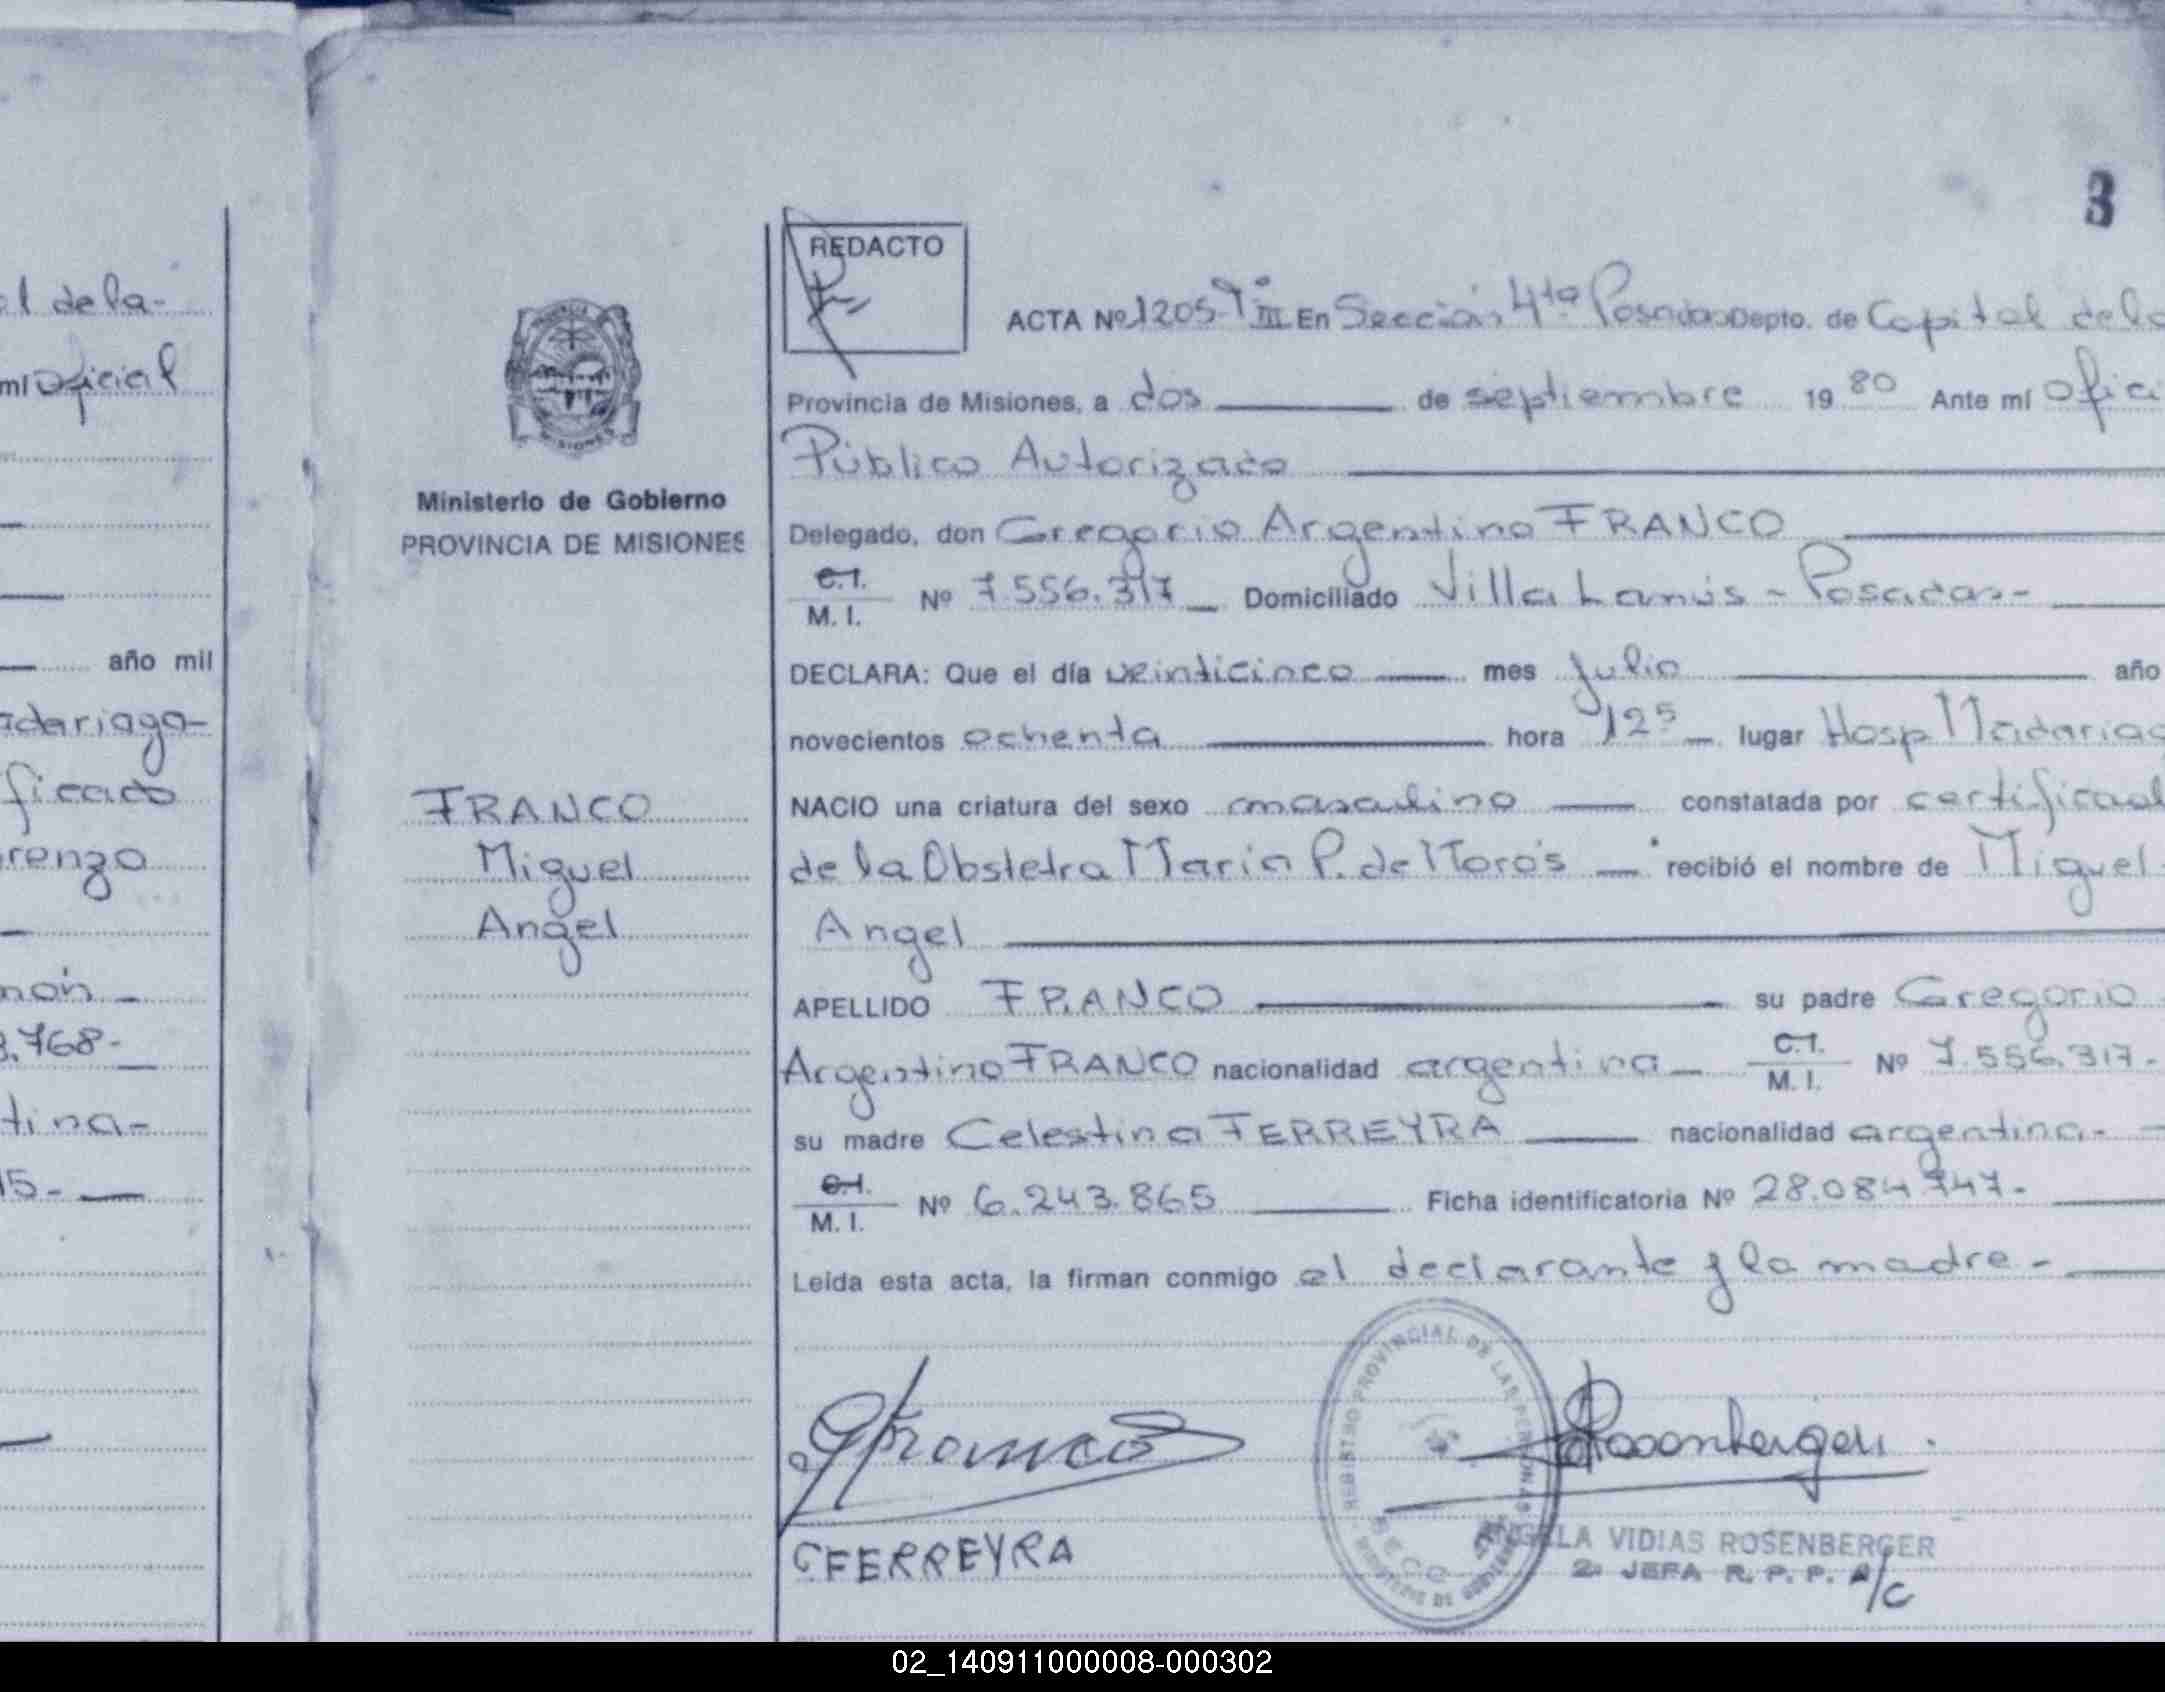 3
REDACTO
ACTA Nº 1205 Tº III En Sección 4ta Posadas Depto. de Capital de la
Provincia de Misiones, a dos de septiembre 19 80 Ante mí Ofici
Público Autorizado
Delegado, don Gregorio Argentino FRANCO
C.I.
M. I. Nº 7.556.317 Domiciliado Villa Lanús - Posadas-
DECLARA: Que el día veinticinco mes julio año
novecientos ochenta hora 12⁵ lugar Hosp Madariag
NACIO una criatura del sexo masculino constatada por certificad
de la Obstetra María P. de Moro's recibió el nombre de Miguel
Angel
APELLIDO FRANCO su padre Gregorio
Argentino FRANCO nacionalidad argentina C.I. M. I. Nº 7.556.317.-
su madre Celestina FERREYRA nacionalidad argentina.-
C.I.
M. I. Nº 6.243.865 Ficha identificatoria Nº 28.084.747.-
Leida esta acta, la firman conmigo el declarante y la madre.-
GFranco
Rosenberger
C FERREYRA
REGISTRO PROVINCIAL DE LAS PERSONAS
MINISTERIO DE GOBIERNO
ANGELA VIDIAS ROSENBERGER
2ª JEFA R. P. P. A/C
MISIONES
Ministerio de Gobierno
PROVINCIA DE MISIONES
FRANCO
Miguel
Angel
al de la-
mí Oficial
año mil
adariaga-
ficado
renzo
món -
3.768-
tina-
15-
02_140911000008-000302